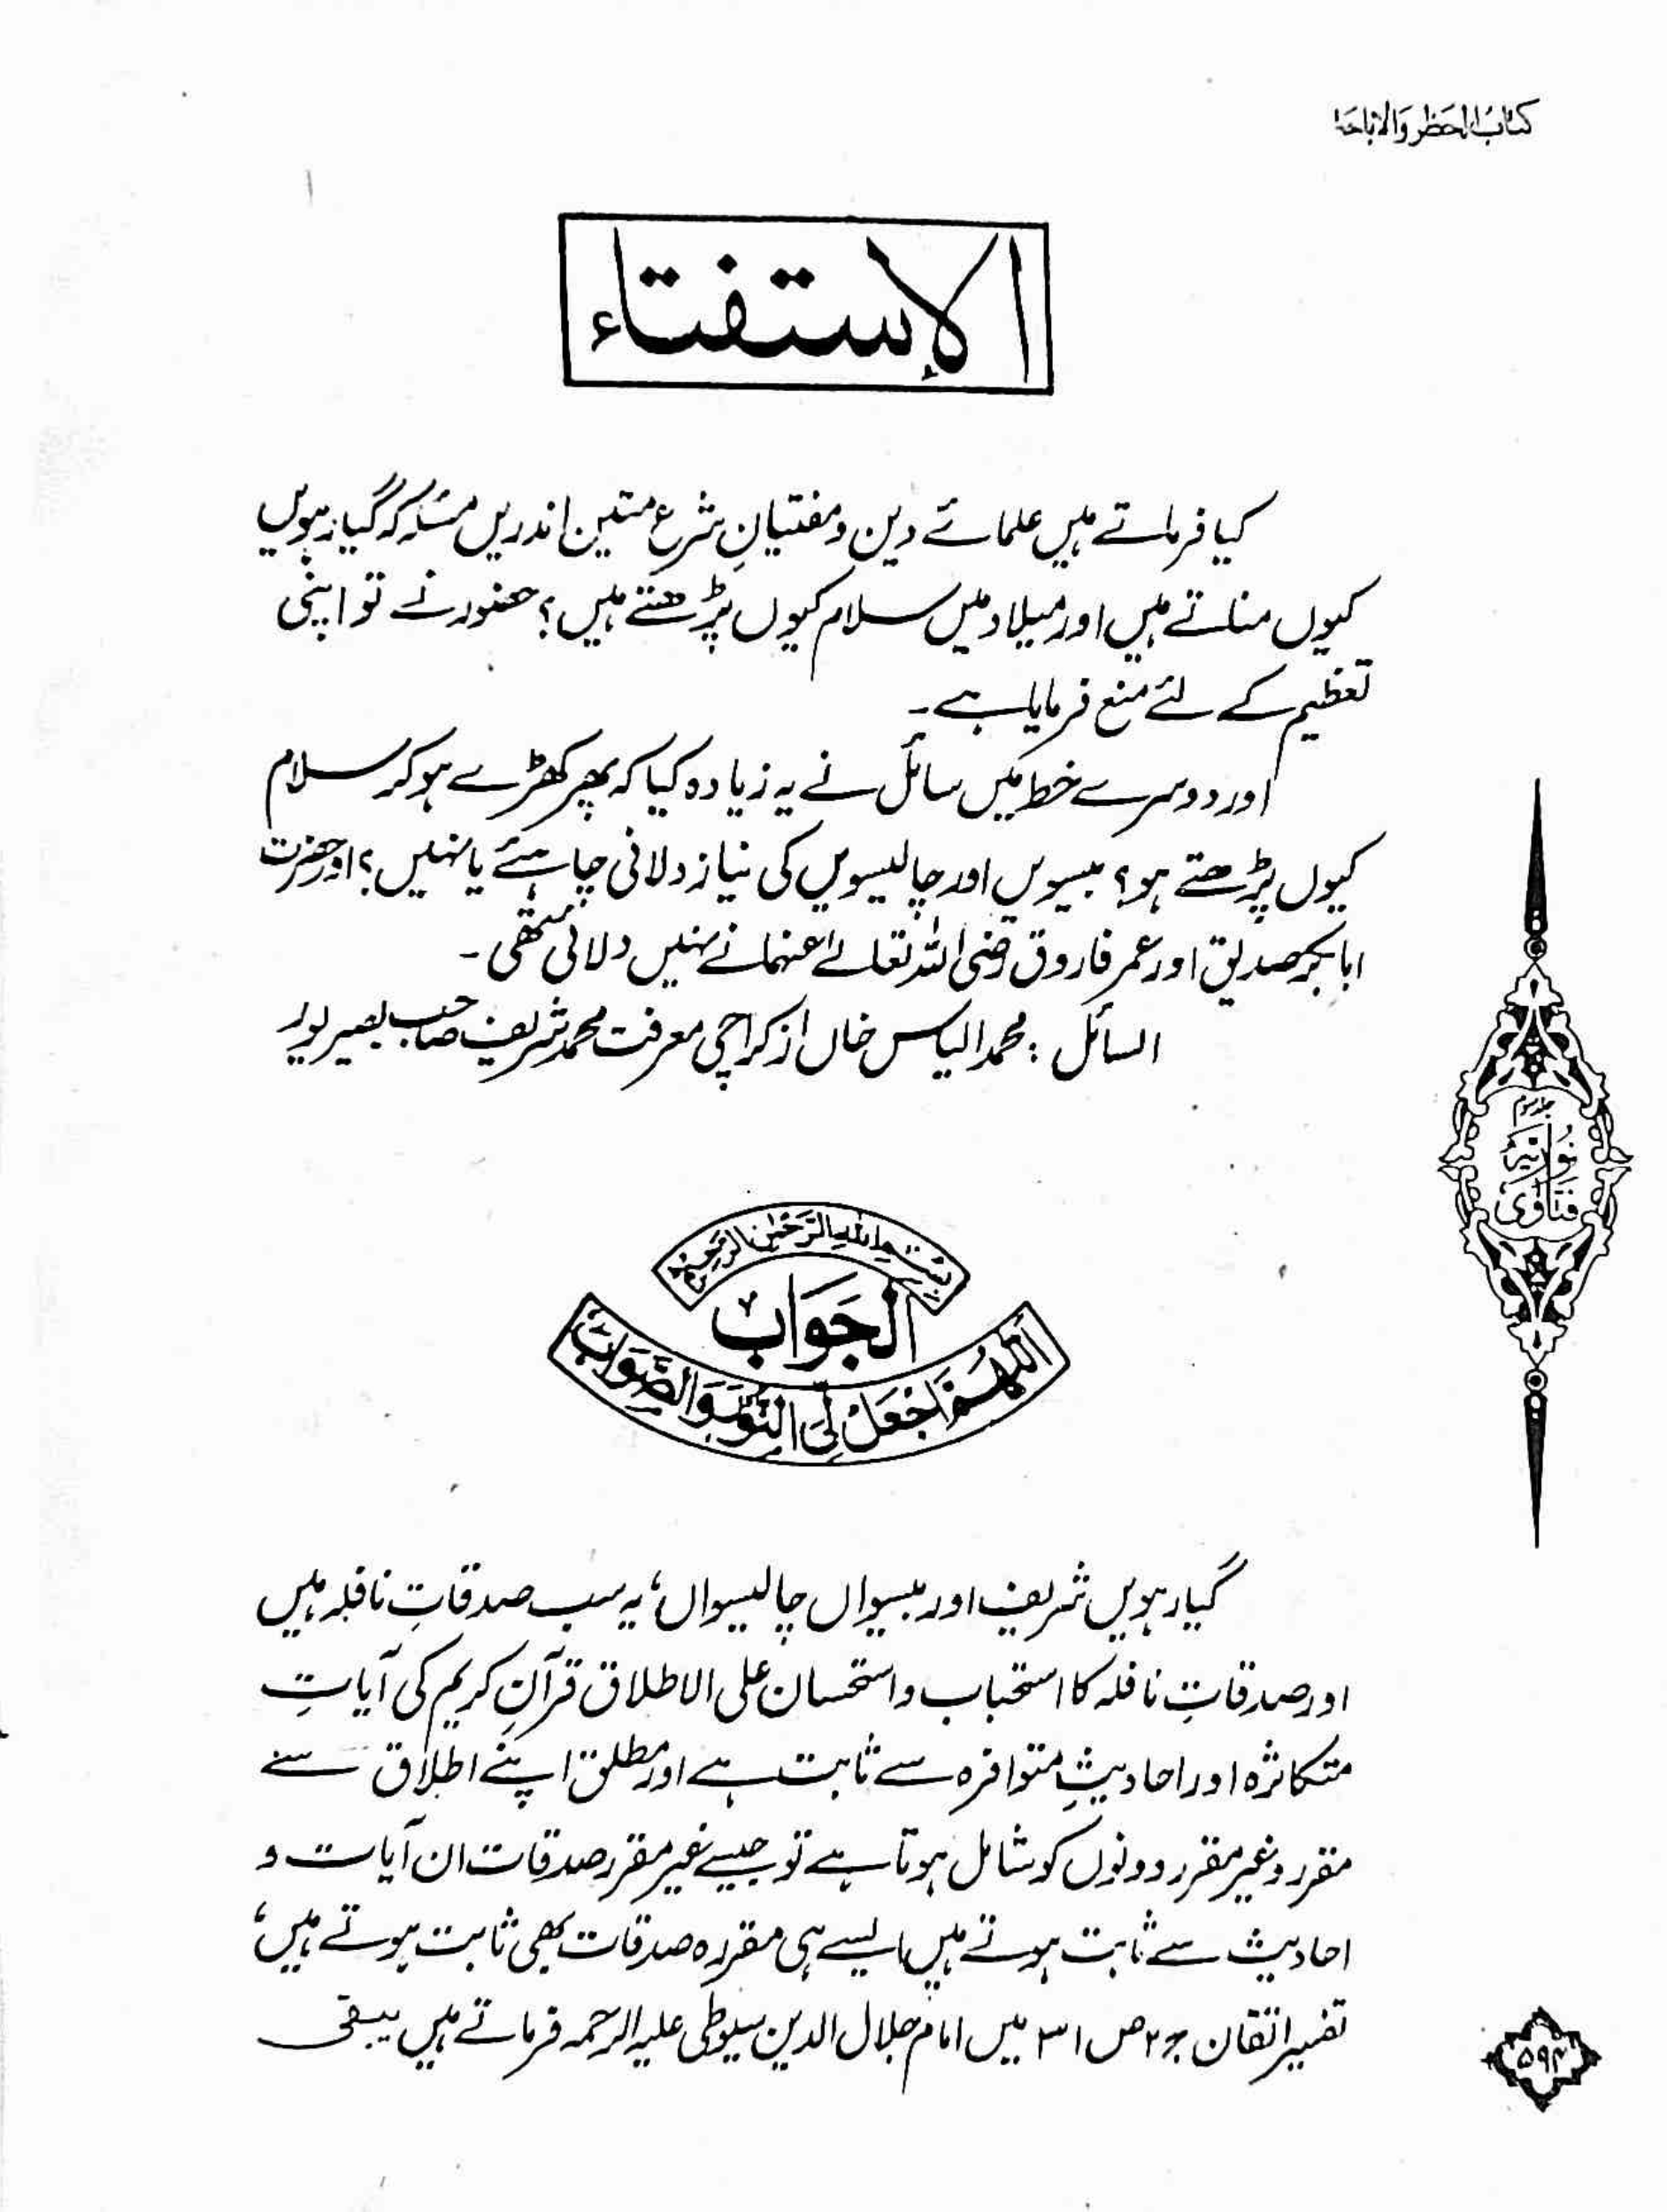 کتاب الحظر والاباحۃ
الإستفتاء
کیا فرماتے ہیں علمائے دین ومفتیانِ شرع متین اندریں مسئلہ کہ گیارہویں
کیوں مناتے ہیں اور میلاد میں سلام کیوں پڑھتے ہیں؟ حضور نے تو اپنی
تعظیم کے لئے منع فرمایا ہے۔
اور دوسرے خط میں سائل نے یہ زیادہ کیا کہ پھر کھڑے ہوکر سلام
کیوں پڑھتے ہو؟ بیسویں اور چالیسویں کی نیاز دلانی چاہئے یا نہیں؟ اور حضرت
ابابکر صدیق اور عمر فاروق رضی اللہ تعالےٰ عنہما نے نہیں دلائی تھی۔
السائل: محمد الیاس خاں از کراچی معرفت محمد شریف صاحب بصیر پور
جلد سوم
نوریہ
فتاوٰی
بسم اللہ الرحمٰن الرحیم
الجَوَابُ
اَللّٰھُمَّ اجْعَلْ لِّیَ النُّوْرَ وَالصَّوَابَ
گیارہویں شریف اور بیسواں چالیسواں، یہ سب صدقاتِ نافلہ ہیں
اور صدقاتِ نافلہ کا استحباب و استحسان علی الاطلاق قرآنِ کریم کی آیاتِ
متکاثرہ اور احادیثِ متوافرہ سے ثابت ہے اور مطلق اپنے اطلاق سے
مقرر وغیر مقرر دونوں کو شامل ہوتا ہے تو جیسے غیر مقرر صدقات ان آیات و
احادیث سے ثابت ہوتے ہیں ایسے ہی مقررہ صدقات بھی ثابت ہوتے ہیں،
تفسیر اتقان ج۲ ص۳۱ میں امام جلال الدین سیوطی علیہ الرحمہ فرماتے ہیں یبقی
۵۹۴